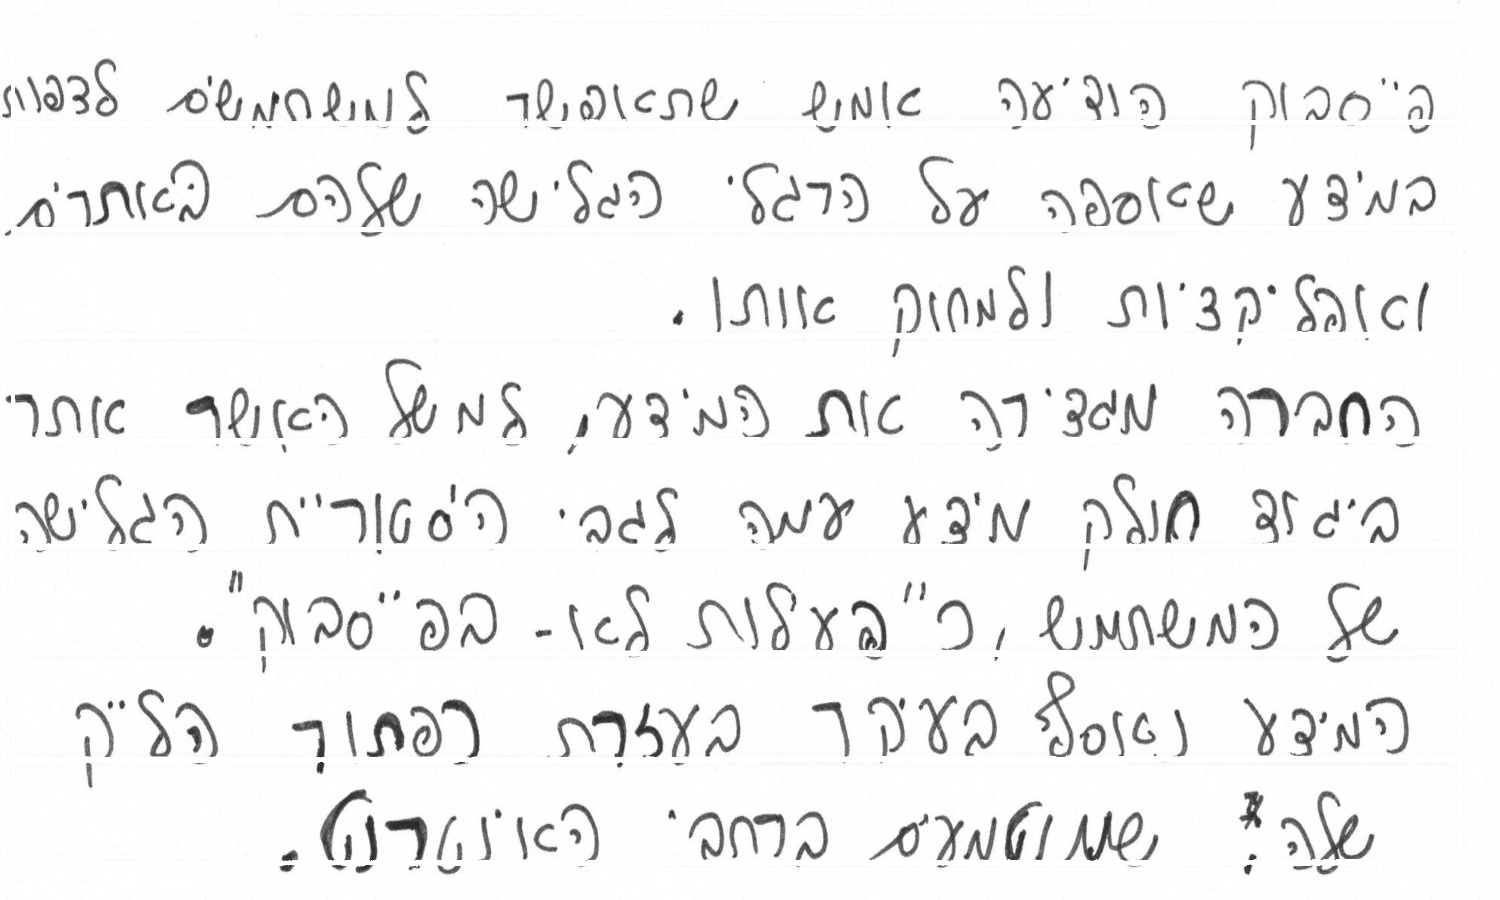 פייסבוק הודיעה אמש שתאפשר למשתמשים לצפות
במידע שאספה על הרגלי הגלישה שלהם באתרים
ואפליקציות ולמחוק אותו.
החברה מגדירה את המידע, למשל האשר אתר
ביגוד חולק מידע עמה לגבי היסטוריית הגלישה
של המשתמש, כ"פעילות לא- בפייסבוק".
המידע נאסף בעיקר בעזרת כפתור הלייק
שלה שמוטמעים ברחבי האינטרנט.